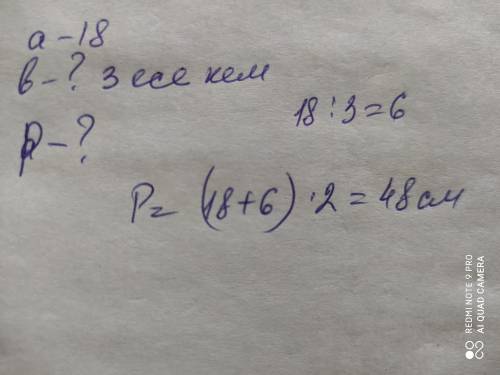 a - 18
b - ? 3 есе кем
18 : 3 = 6
P - ?
P = (18 + 6) · 2 = 48 см
REDMI NOTE 9 PRO
AI QUAD CAMERA